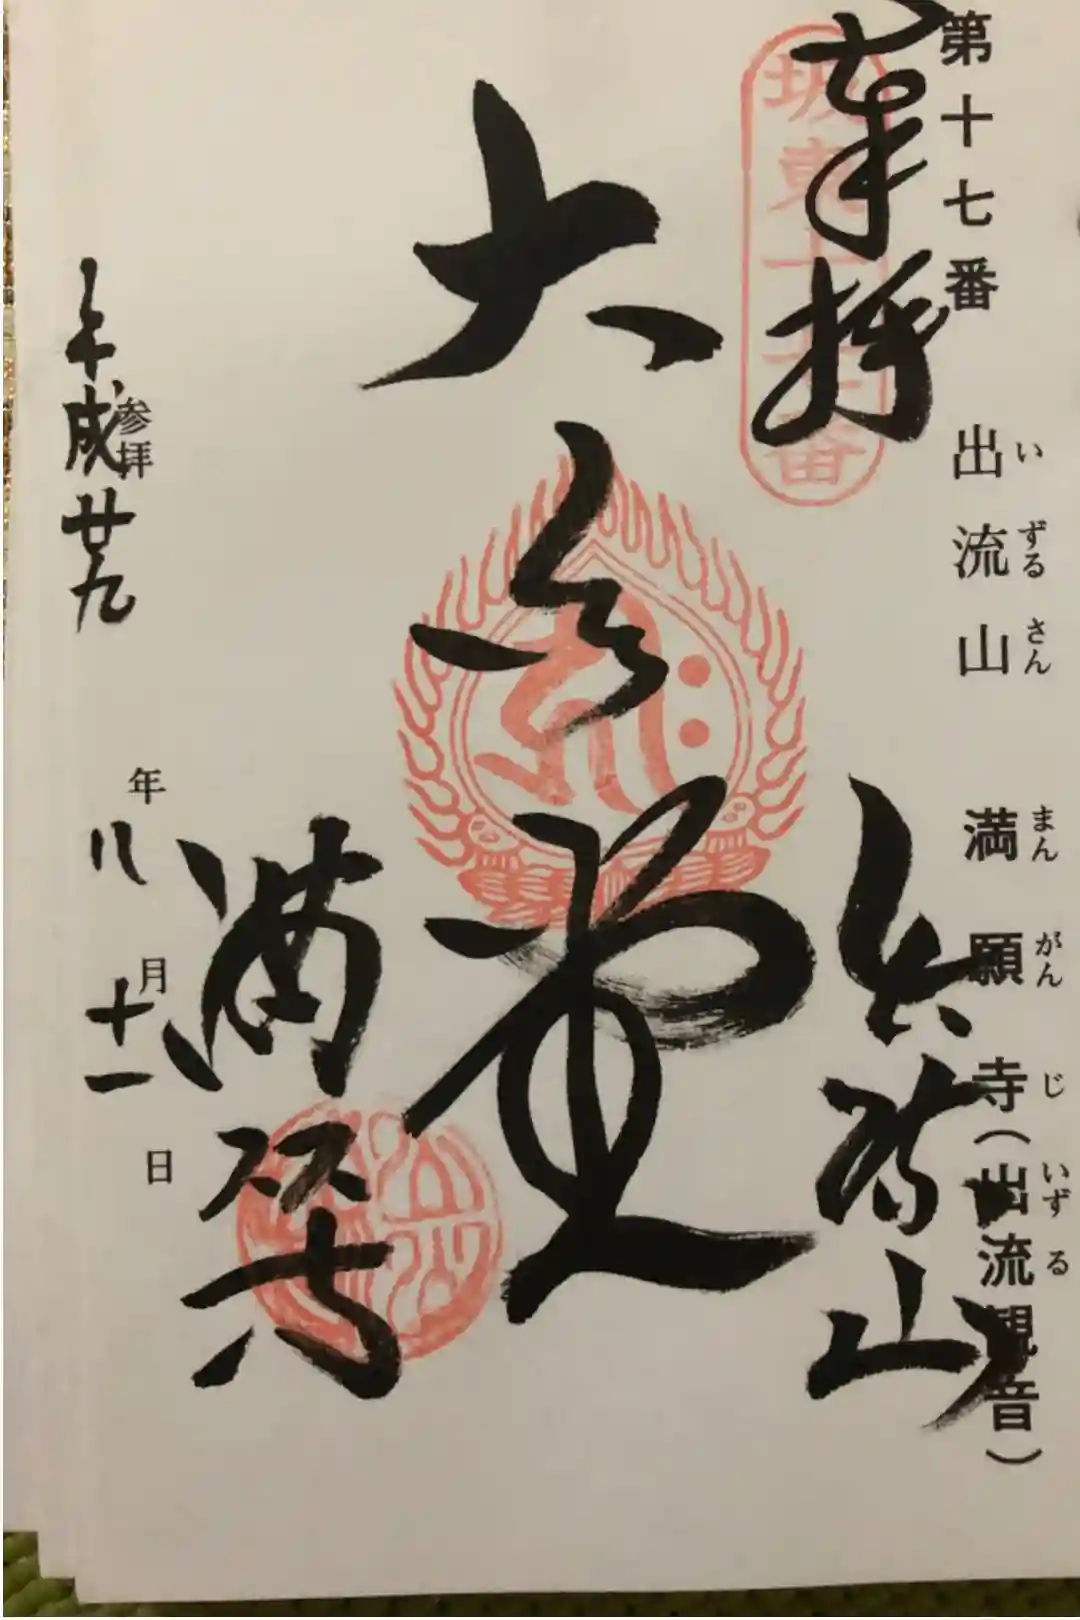 第十七番　出流山　満願寺（出流観音）
いずるさん　まんがんじ　いずる
奉拝
坂東十七番
出流山
大悲堂
満願寺
参拝　年　月　日
平成廿九　八　十一